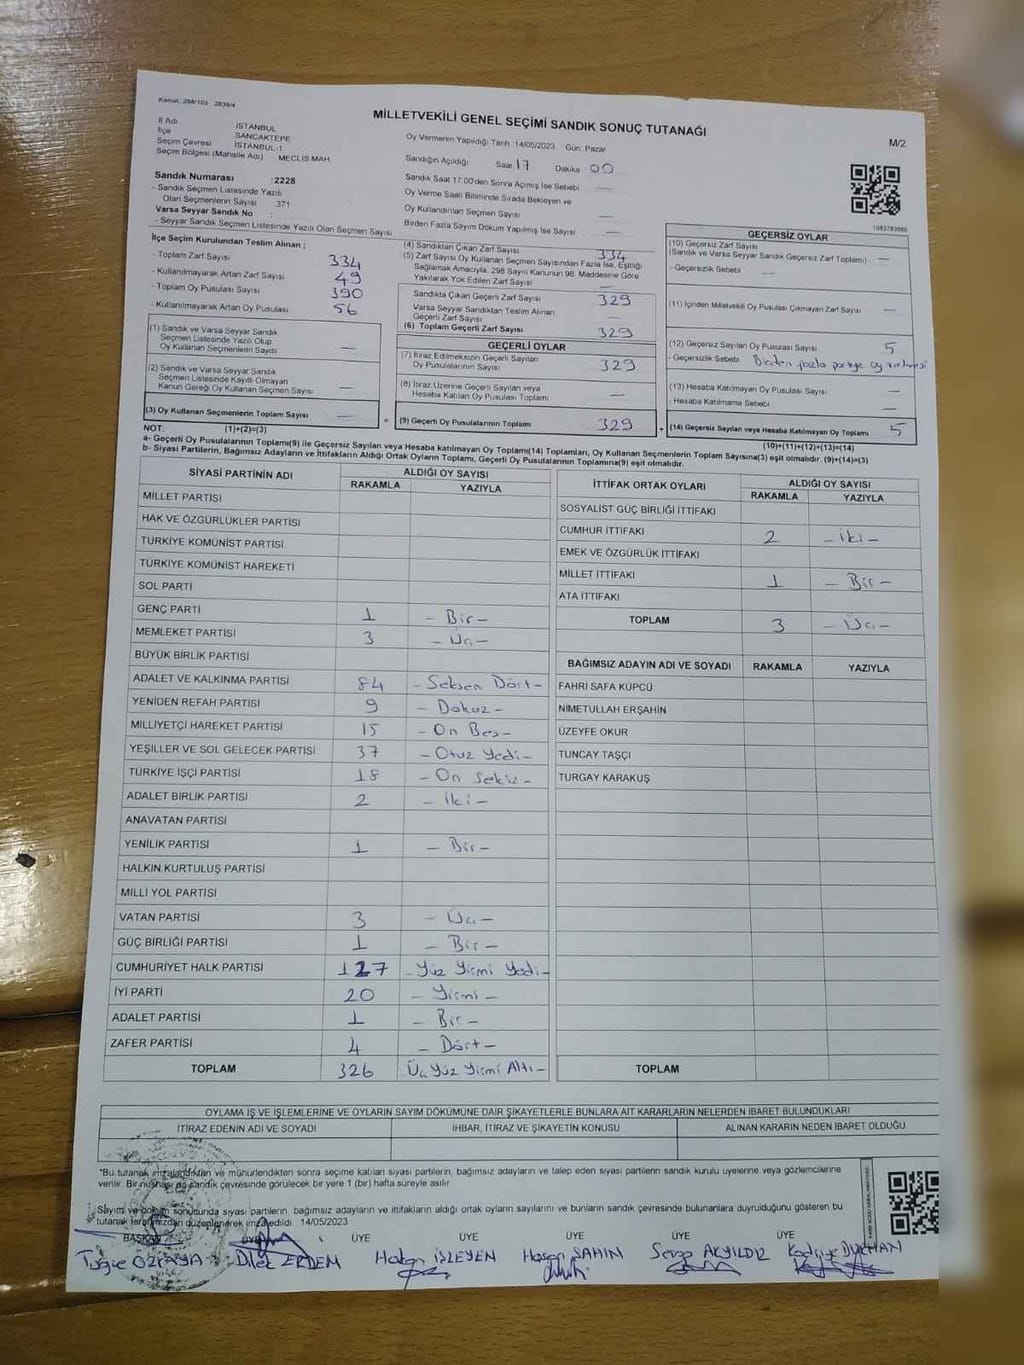 Kanun: 298/105 2839/4
MİLLETVEKİLİ GENEL SEÇİMİ SANDIK SONUÇ TUTANAĞI
M/2
İl Adı İSTANBUL
İlçe SANCAKTEPE
Seçim Çevresi İSTANBUL-1
Seçim Bölgesi (Mahalle Adı) MECLİS MAH.
Oy Vermenin Yapıldığı Tarih 14/05/2023 Gün: Pazar
Sandığın Açıldığı Saat 17 Dakika 00
Sandık Saat 17:00'den Sonra Açımış İse Sebebi —
Oy Verme Saati Bitiminde Sırada Bekleyen ve
Oy Kullandırılan Seçmen Sayısı —
Birden Fazla Sayım Döküm Yapılmış İse Sayısı —
Sandık Numarası :2228
- Sandık Seçmen Listesinde Yazılı
Olan Seçmenlerin Sayısı 371
Varsa Seyyar Sandık No :
- Seyyar Sandık Seçmen Listesinde Yazılı Olan Seçmen Sayısı
1083783660
İlçe Seçim Kurulundan Teslim Alınan ;
- Toplam Zarf Sayısı 334
- Kullanılmayarak Artan Zarf Sayısı 49
- Toplam Oy Pusulası Sayısı 390
- Kullanılmayarak Artan Oy Pusulası 56
(1) Sandık ve Varsa Seyyar Sandık
Seçmen Listesinde Yazılı Olup
Oy Kullanan Seçmenlerin Sayısı —
(2) Sandık ve Varsa Seyyar Sandık
Seçmen Listesinde Kayıtlı Olmayan
Kanun Gereği Oy Kullanan Seçmen Sayısı —
(3) Oy Kullanan Seçmenlerin Toplam Sayısı —
(4) Sandıktan Çıkan Zarf Sayısı 334
(5) Zarf Sayısı Oy Kullanan Seçmen Sayısından Fazla İse, Eşitliği
Sağlamak Amacıyla, 298 Sayılı Kanunun 98. Maddesine Göre
Yakılarak Yok Edilen Zarf Sayısı —
Sandıkta Çıkan Geçerli Zarf Sayısı 329
Varsa Seyyar Sandıktan Teslim Alınan
Geçerli Zarf Sayısı —
(6) Toplam Geçerli Zarf Sayısı 329
GEÇERLİ OYLAR
(7) İtiraz Edilmeksizin Geçerli Sayılan
Oy Pusulalarının Sayısı 329
(8) İtiraz Üzerine Geçerli Sayılan veya
Hesaba Katılan Oy Pusulası Toplamı —
= (9) Geçerli Oy Pusulalarının Toplamı 329 +
GEÇERSİZ OYLAR
(10) Geçersiz Zarf Sayısı
(Sandık ve Varsa Seyyar Sandık Geçersiz Zarf Toplamı) —
- Geçersizlik Sebebi —
(11) İçinden Milletvekili Oy Pusulası Çıkmayan Zarf Sayısı —
(12) Geçersiz Sayılan Oy Pusulası Sayısı 5
- Geçersizlik Sebebi Birden fazla partiye oy verilmesi
(13) Hesaba Katılmayan Oy Pusulası Sayısı —
- Hesaba Katılmama Sebebi —
(14) Geçersiz Sayılan veya Hesaba Katılmayan Oy Toplamı 5
NOT: (1)+(2)=(3)
(10)+(11)+(12)+(13)=(14)
a- Geçerli Oy Pusulalarının Toplamı(9) ile Geçersiz Sayılan veya Hesaba katılmayan Oy Toplamı(14) Toplamları, Oy Kullanan Seçmenlerin Toplam Sayısına(3) eşit olmalıdır. (9)+(14)=(3)
b- Siyasi Partilerin, Bağımsız Adayların ve İttifakların Aldığı Ortak Oyların Toplamı, Geçerli Oy Pusulalarının Toplamına(9) eşit olmalıdır.
SİYASİ PARTİNİN ADI ALDIĞI OY SAYISI
RAKAMLA YAZIYLA
MİLLET PARTİSİ
HAK VE ÖZGÜRLÜKLER PARTİSİ
TÜRKİYE KOMÜNİST PARTİSİ
TÜRKİYE KOMÜNİST HAREKETİ
SOL PARTİ
GENÇ PARTİ 1 - Bir -
MEMLEKET PARTİSİ 3 - Üç -
BÜYÜK BİRLİK PARTİSİ
ADALET VE KALKINMA PARTİSİ 84 - Seksen Dört -
YENİDEN REFAH PARTİSİ 9 - Dokuz -
MİLLİYETÇİ HAREKET PARTİSİ 15 - On Beş -
YEŞİLLER VE SOL GELECEK PARTİSİ 37 - Otuz Yedi -
TÜRKİYE İŞÇİ PARTİSİ 18 - On Sekiz -
ADALET BİRLİK PARTİSİ 2 - İki -
ANAVATAN PARTİSİ
YENİLİK PARTİSİ 1 - Bir -
HALKIN KURTULUŞ PARTİSİ
MİLLİ YOL PARTİSİ
VATAN PARTİSİ 3 - Üç -
GÜÇ BİRLİĞİ PARTİSİ 1 - Bir -
CUMHURİYET HALK PARTİSİ 127 - Yüz Yirmi Yedi -
İYİ PARTİ 20 - Yirmi -
ADALET PARTİSİ 1 - Bir -
ZAFER PARTİSİ 4 - Dört -
TOPLAM 326 Üç Yüz Yirmi Altı -
İTTİFAK ORTAK OYLARI ALDIĞI OY SAYISI
RAKAMLA YAZIYLA
SOSYALİST GÜÇ BİRLİĞİ İTTİFAKI
CUMHUR İTTİFAKI 2 - İki -
EMEK VE ÖZGÜRLÜK İTTİFAKI
MİLLET İTTİFAKI 1 - Bir -
ATA İTTİFAKI
TOPLAM 3 - Üç -
BAĞIMSIZ ADAYIN ADI VE SOYADI RAKAMLA YAZIYLA
FAHRİ SAFA KÜPCÜ
NİMETULLAH ERŞAHİN
ÜZEYFE OKUR
TUNCAY TAŞÇI
TURGAY KARAKUŞ
TOPLAM
OYLAMA İŞ VE İŞLEMLERİNE VE OYLARIN SAYIM DÖKÜMÜNE DAİR ŞİKAYETLERLE BUNLARA AİT KARARLARIN NELERDEN İBARET BULUNDUKLARI
İTİRAZ EDENİN ADI VE SOYADI İHBAR, İTİRAZ VE ŞİKAYETİN KONUSU ALINAN KARARIN NEDEN İBARET OLDUĞU
*Bu tutanak imzalandıktan ve mühürlendikten sonra seçime katılan siyasi partilerin, bağımsız adayların ve talep eden siyasi partilerin sandık kurulu üyelerine veya gözlemcilerine
verilir. Bir nüshası da sandık çevresinde görülecek bir yere 1 (bir) hafta süreyle asılır.
Sayım ve döküm sonucunda siyasi partilerin, bağımsız adayların ve ittifakların aldığı ortak oyların sayılarını ve bunların sandık çevresinde bulunanlara duyrulduğunu gösteren bu
tutanak tarafımızdan düzenlenerek imza edildi. 14/05/2023
BAŞKAN ÜYE ÜYE ÜYE ÜYE ÜYE
Tuğçe ÖZKAYA Dilek ERDEM Hakan İŞLEYEN Hasan ŞAHİN Sevgi AKYILDIZ